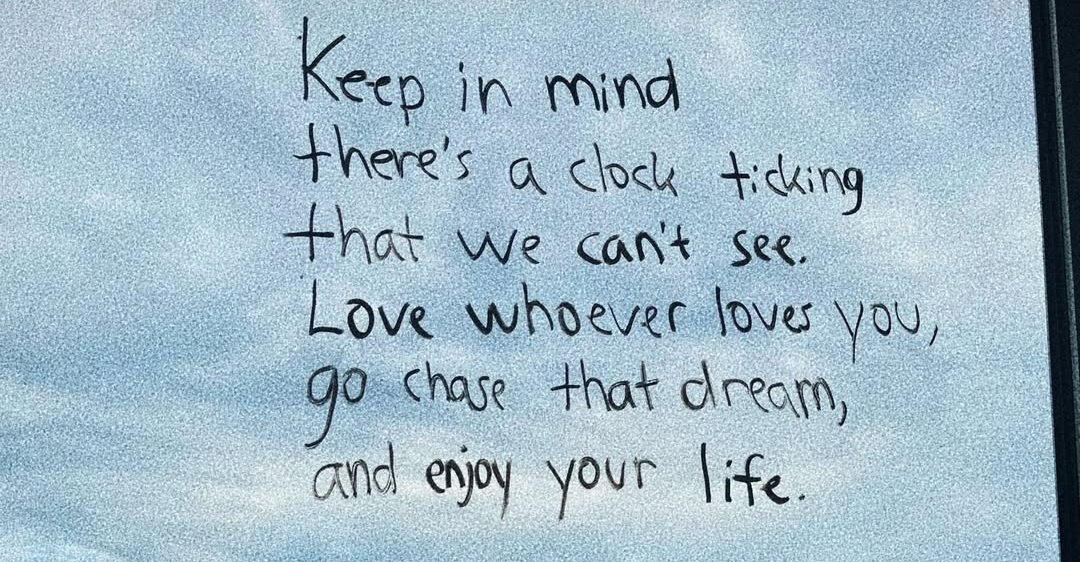 Keep in mind
there's a clock ticking
that we can't see.
Love whoever loves you,
go chase that dream,
and enjoy your life.